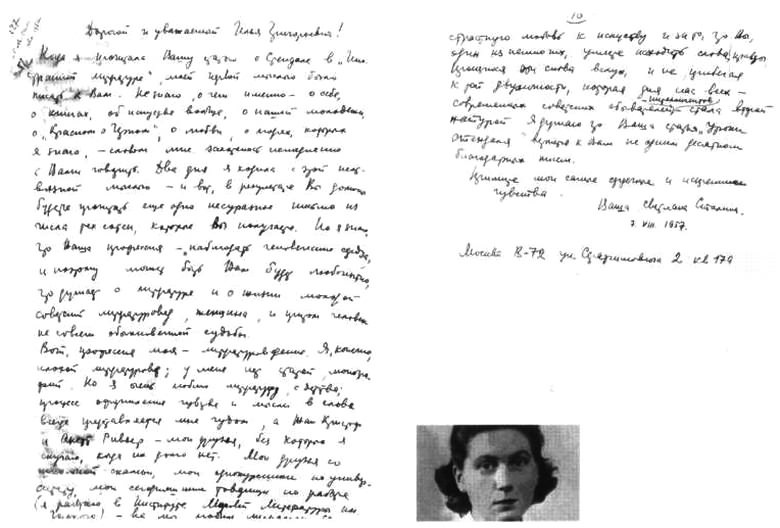 Дорогой и уважаемый Илья Григорьевич!
Когда я прочитала Вашу статью о Стендале в "Ино-
странной литературе", моей первой мыслью было
писать к Вам. Не знаю, о чем именно – о себе,
о книгах, об искусстве вообще, о нашей молодежи,
о "Красном и Черном", о любви, о людях, которых
я знаю, – словом мне захотелось немедленно
с Вами говорить. Два дня я ходила с этой неот-
вязной мыслью – и вот, в результате Вы должны
будете прочитать еще одно несуразное письмо из
числа тех сотен, которые Вы получаете. Но я знаю,
что Ваша профессия – "наблюдать человеческие сердца",
и потому может быть Вам будет любопытно,
что думает о литературе и о жизни молодой
советский литературовед, женщина, и притом человек
не совсем обыкновенной судьбы.
Вот, профессия моя – литературоведение. Я, конечно,
плохой литературовед; у меня нет статей, моногра-
фий. Но я очень люблю литературу, с детства;
процесс обращения чувства и мысли в слова
всегда представляется мне чудом, а Жан Кристоф
и Аннет Ривьер – мои друзья, без которых я
скучаю, когда их долго нет. Мои друзья со
школьной скамьи, мои однокурсники по универ-
ситету, мои сегодняшние товарищи по работе
(я работаю в Институте Мировой Литературы им.
Горького) – все мы любим
10
страстную любовь к искусству и за то, что Вы,
один из немногих, умеете находить слова правды,
произнося эти слова вслух, и не прибегая
к той двуличности, которая для нас всех –
современных советских интеллигентов стала второй
натурой. Я думаю, что Ваша статья "Уроки
Стендаля" вернется к Вам не одним десятком
благодарных писем.
Примите мои самые сердечные и искренние
чувства.
Ваша Светлана Сталина.
7. VIII. 1957.
Москва В-72 ул. Серафимовича 2 кв 179